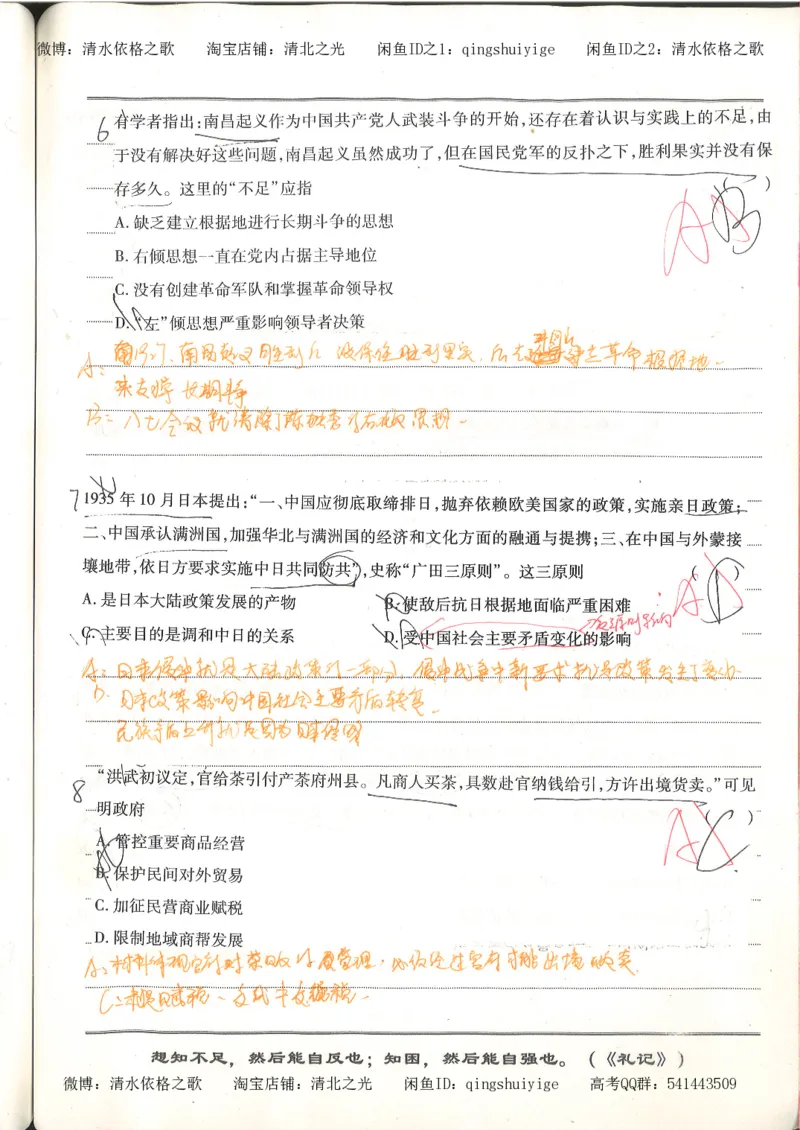 微博：清水依格之歌 淘宝店铺：清北之光 闲鱼ID之1：qingshuiyige 闲鱼ID之2：清水依格之歌
6 有学者指出：南昌起义作为中国共产党人武装斗争的开始，还存在着认识与实践上的不足，由
于没有解决好这些问题，南昌起义虽然成功了，但在国民党军的反扑之下，胜利果实并没有保
存多久。这里的“不足”应指 （ ）
A B
A. 缺乏建立根据地进行长期斗争的思想
B. 右倾思想一直在党内占据主导地位
C. 没有创建革命军队和掌握革命领导权
D. “左”倾思想严重影响领导者决策
A: 南昌起义胜利后 没保住胜利果实，后 革命根据地
长期
B: 八七会议就清除了陈独秀 右倾思想
7 1935 年 10 月日本提出：“一、中国应彻底取缔排日，抛弃依赖欧美国家的政策，实施亲日政策；
二、中国承认满洲国，加强华北与满洲国的经济和文化方面的融通与提携；三、在中国与外蒙接
壤地带，依日方要求实施中日共同防共”，史称“广田三原则”。这三原则 （ ）
A D
A. 是日本大陆政策发展的产物 B. 使敌后抗日根据地面临严重困难
C. 主要目的是调和中日的关系 D. 受中国社会主要矛盾变化的影响
A: 日本侵华就是大陆政策的一部分，侵华战争中
D. 日本政策影响中国社会主要矛盾转变
民族矛盾上升就是因为日本侵略
8 “洪武初议定，官给茶引付产茶府州县。凡商人买茶，具数赴官纳钱给引，方许出境货卖。”可见
明政府 （ ）
A C
A. 管控重要商品经营
B. 保护民间对外贸易
C. 加征民营商业赋税
D. 限制地域商帮发展
A: 材料体现官府对茶 管理，必须经过官府才能出境
C: 未提赋税
想知不足，然后能自反也；知困，然后能自强也。（《礼记》）
微博：清水依格之歌 淘宝店铺：清北之光 闲鱼ID：qingshuiyige 高考QQ群：541443509